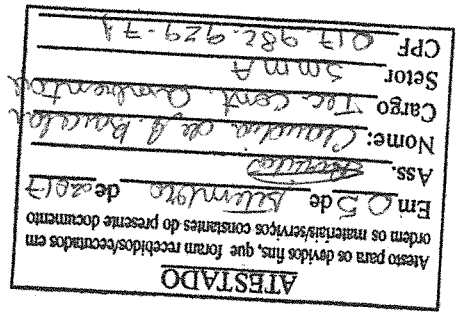 ATESTADO
Atesto para os devidos fins, que foram recebidos/executados em
ordem os materiais/serviços constantes do presente documento
Em 05 de Setembro de 2017
Ass.
Nome: Claudia de A.
Cargo Tec. Cont. Ambiental
Setor SMMA
CPF 017.982.929-71